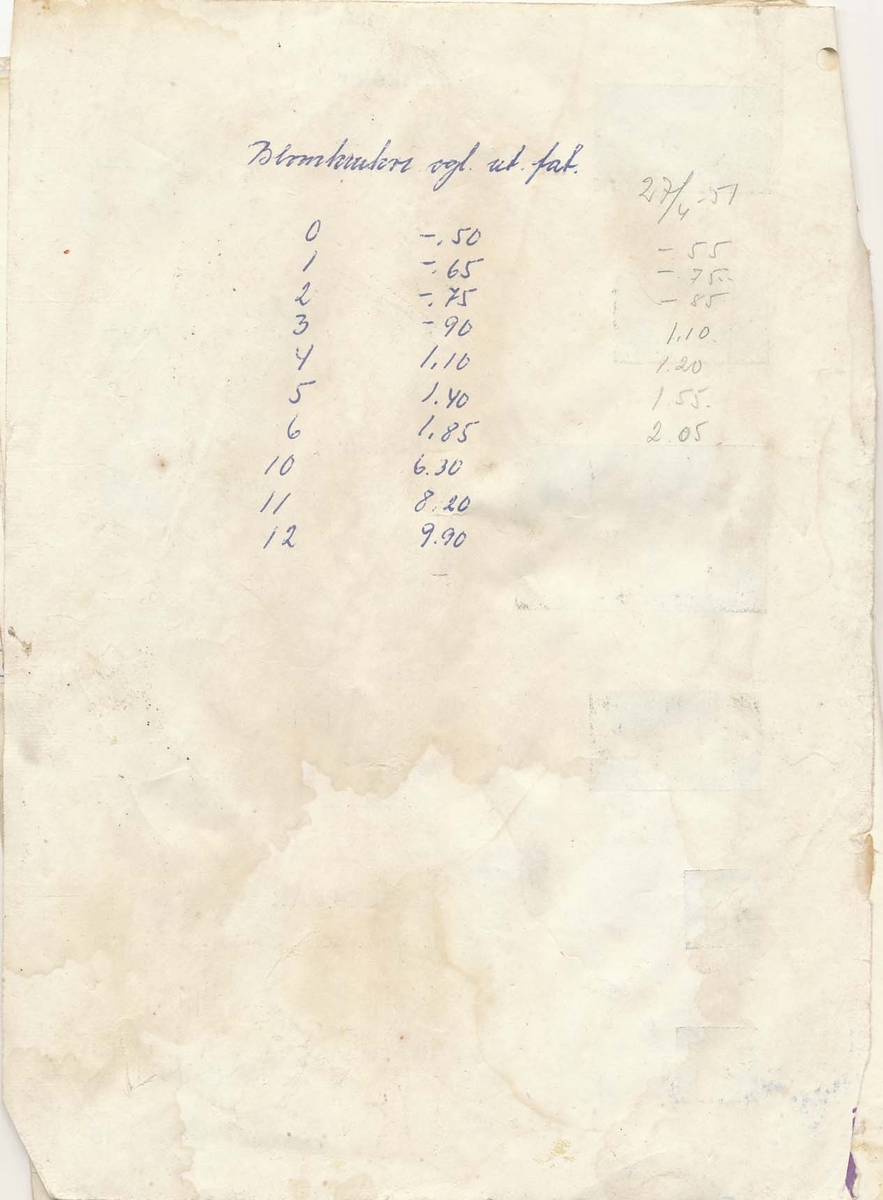 Blomkrukor ogl. ut. fat.
27/4-51
0 -.50 -55
1 -.65 -75
2 -.75 -85
3 -90 1.10.
4 1.10 1.20
5 1.40 1 55.
6 1.85 2.05
10 6.30
11 8.20
12 9.90